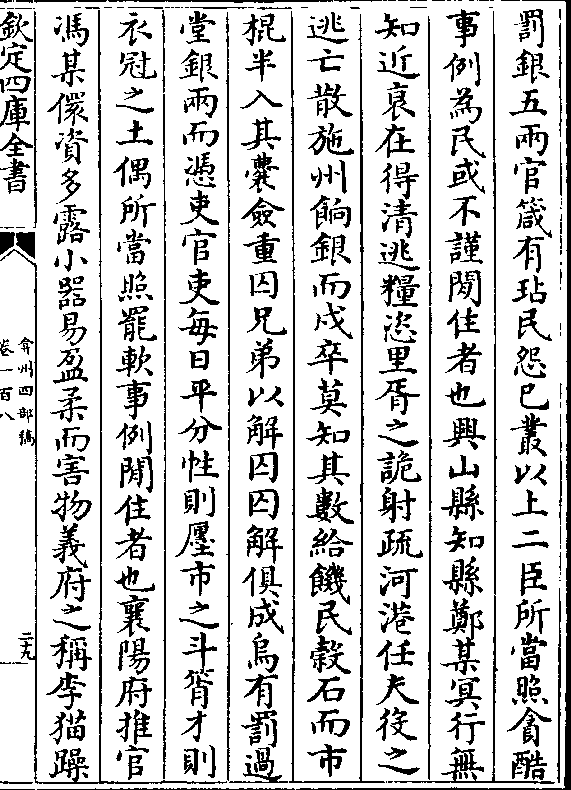 罰銀五兩官箴有玷民怨已叢以上二臣所當照貪酷
事例為民或不謹閒住者也興山縣知縣鄭某冥行無
知近衰在得清逃糧恣里胥之詭射疏河港任夫役之
逃亡散施州餉銀而戍卒莫知其數給饑民穀石而市
棍半入其囊僉重囚兄弟以解囚囚解俱成烏有罰過
堂銀兩而憑吏官吏每日平分性則壥市之斗筲才則
衣冠之土偶所當照罷軟事例閒住者也襄陽府推官
馮某儇資多露小器易盈柔而害物義府之稱李猫躁
欽定四庫全書
弇州四部稿
卷一百八
二九